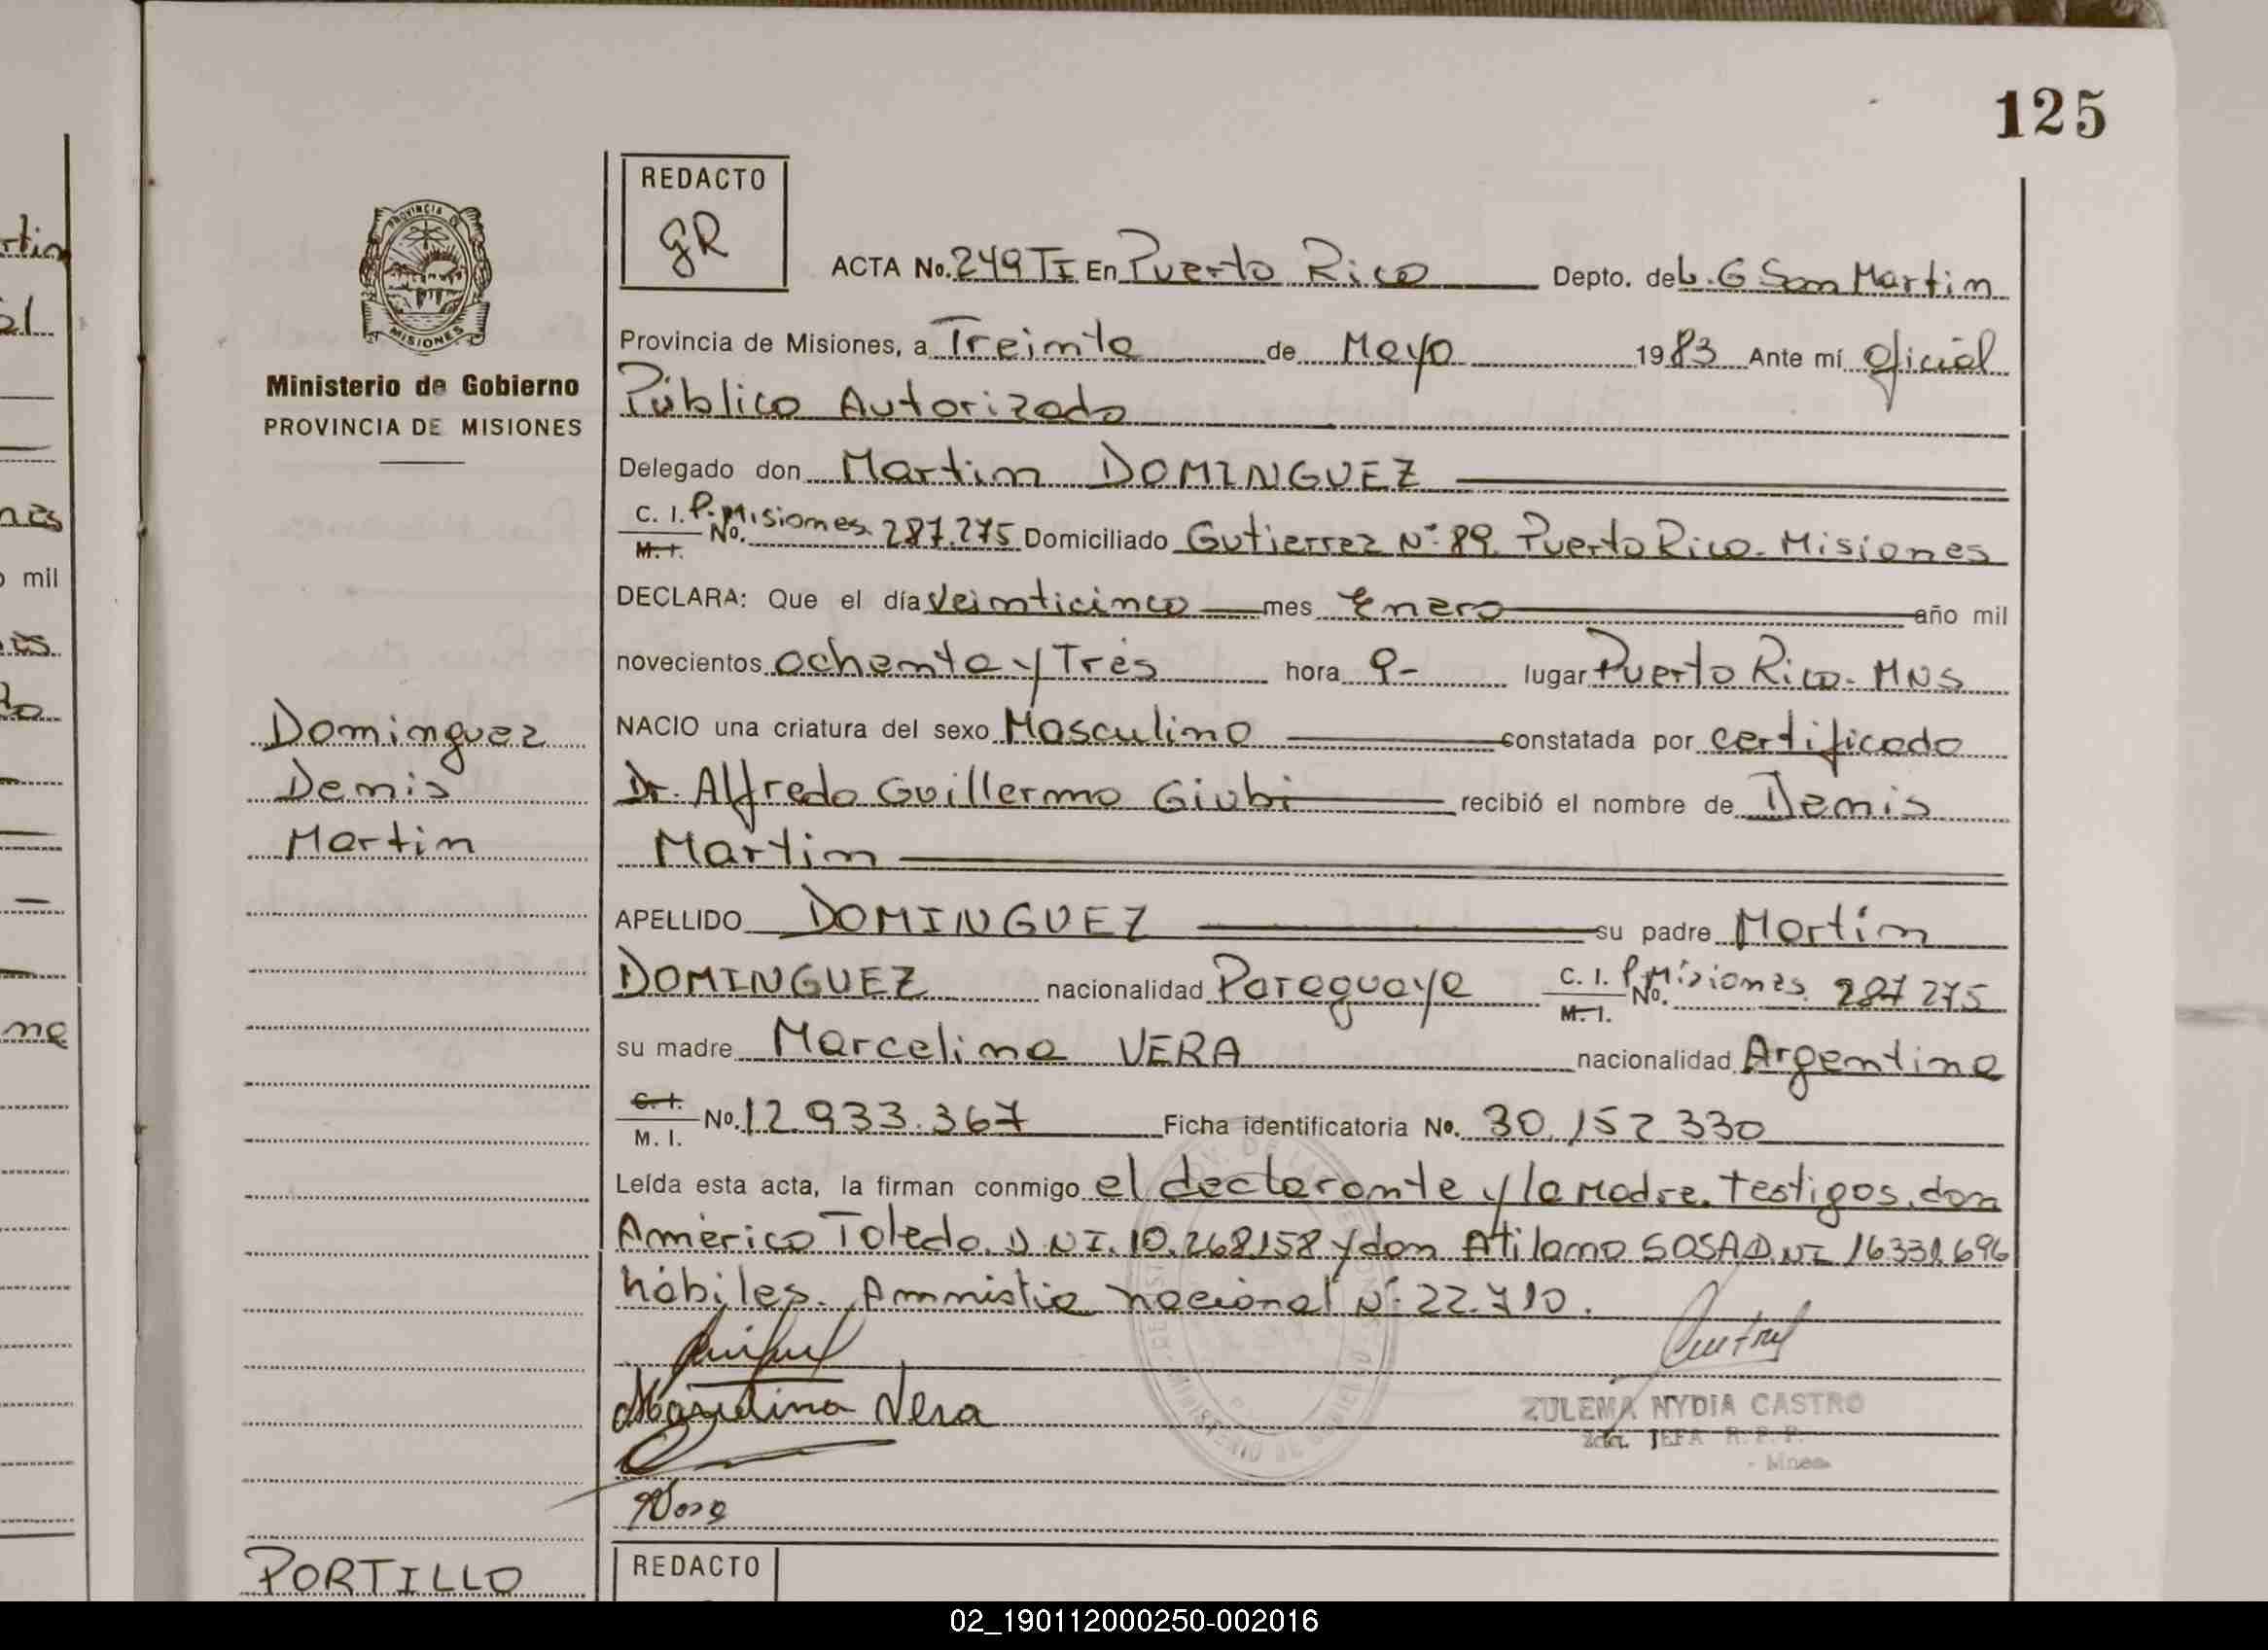 125
REDACTO
gR
PROVINCIA DE
MISIONES
ACTA No. 249 TI En Puerto Rico Depto. de L. G San Martin
Provincia de Misiones, a Treinta de Mayo 1983 Ante mí Oficial
Ministerio de Gobierno
PROVINCIA DE MISIONES
Público Autorizado
Delegado don Martin DOMINGUEZ
C. I. M. I. No. P. Misiones 287.275 Domiciliado Gutierrez Nº 89. Puerto Rico. Misiones
DECLARA: Que el día Veinticinco mes Enero año mil
novecientos ochenta y Tres hora 9- lugar Puerto Rico. MNS
NACIO una criatura del sexo Masculino constatada por certificado
Dr. Alfredo Guillermo Giubi recibió el nombre de Denis
Martin
Dominguez
Denis
Martin
APELLIDO DOMINGUEZ su padre Martín
DOMINGUEZ nacionalidad Paraguaya C. I. M. I. No. P. Misiones. 287 275
su madre Marcelina VERA nacionalidad Argentina
C. I. M. I. No. 12.933.367 Ficha identificatoria No. 30.152.330
Leída esta acta, la firman conmigo el declarante y la Madre. Testigos. don
Américo Toledo. D NI. 10.268158 y don Atilano SOSA D.NI 16331.696
hábiles. Amnistia nacional Nº 22.710.
Marcelina Vera
ZULEMA NYDIA CASTRO
JEFA R. P. P.
PORTILLO
REDACTO
rtin
mil
02_190112000250-002016